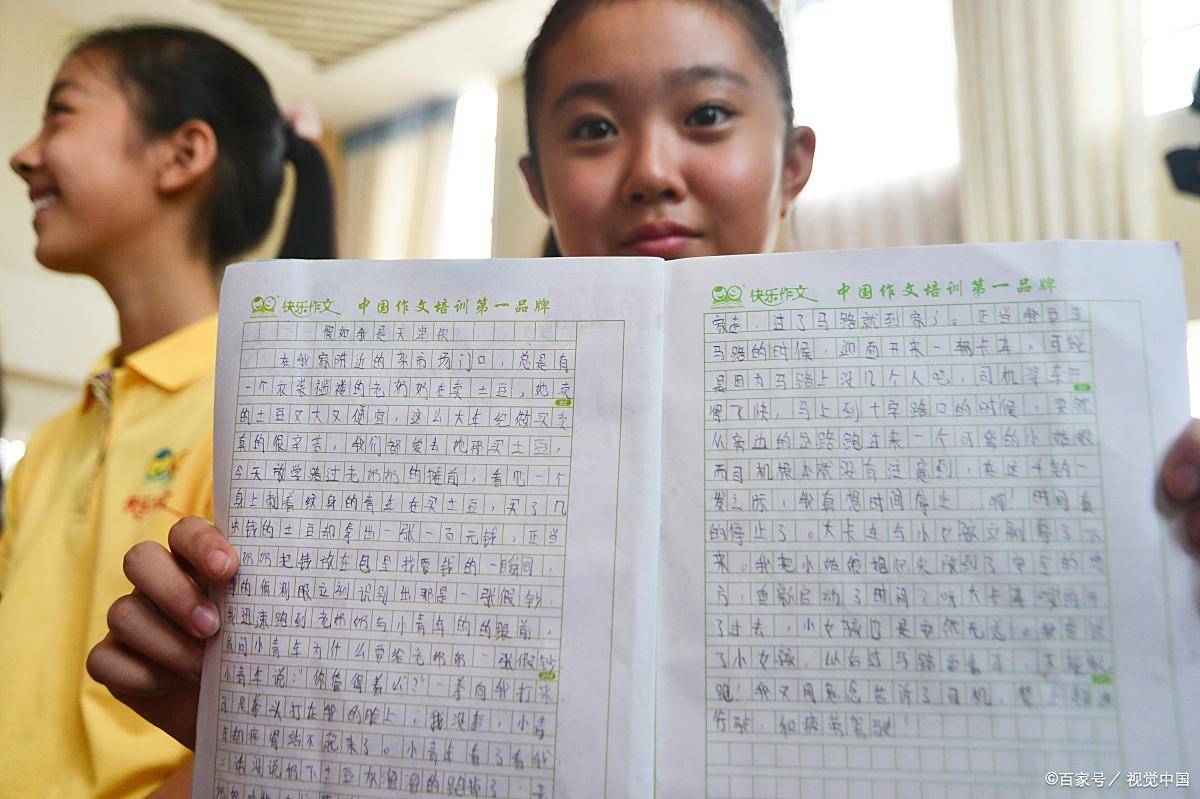 快乐作文 中国作文培训第一品牌
假如我是天津侬
在我家附近的菜市场门口，总是有
一个衣装褴褛的老奶奶在卖土豆，她卖
的土豆又大又便宜，这么大年纪做买卖
真的很辛苦，我们都爱去她那买土豆，
今天放学路过老奶奶的摊前，看见一个
身上刺着纹身的青年在买土豆，买了几
块钱的土豆却拿出一张一百元钱，正当
奶奶把钱放在包里找零钱的一瞬间，
的侦测眼立刻识别出那是一张假钞，
我迅速跑到老奶奶与小青年的的眼前，
问小青年为什么要给老奶奶一张假钞
小青年说："你管得着么？"一拳向我打来
可是拳头打在我的脸上，我没事，小青
年却疼得站不起来了。小青年看了看我
二话没说扔下土豆灰溜溜的跑掉了
快乐作文 中国作文培训第一品牌
家走，过了马路就到家了。正当我要过
马路的时候，迎面开来一辆卡车，可能
是因为马路上没几个人吧，司机将车开
得了快，马上到十字路口的时候，突然
从旁边的岔路跑过来一个可爱的小姑娘
而司机根本就没有注意到，在这千钧一
发之际，我真想时间停止，啊！时间真
的停止了。大卡车与小女孩立刻停了下
来。我把小姑娘抱起来放到了安全的地
方，重新启动了时间了呀大卡车嗖的开
了过去，小女孩也是安然无恙。我告诉
了小女孩，以后过马路要看车，不能乱
跑！我又用意念告诉了司机，禁止超速
行驶，和疲劳驾驶！
©百家号／视觉中国